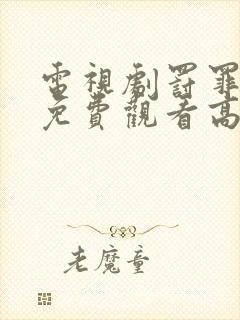 電視劇罰罪
免費觀看高
老魔童